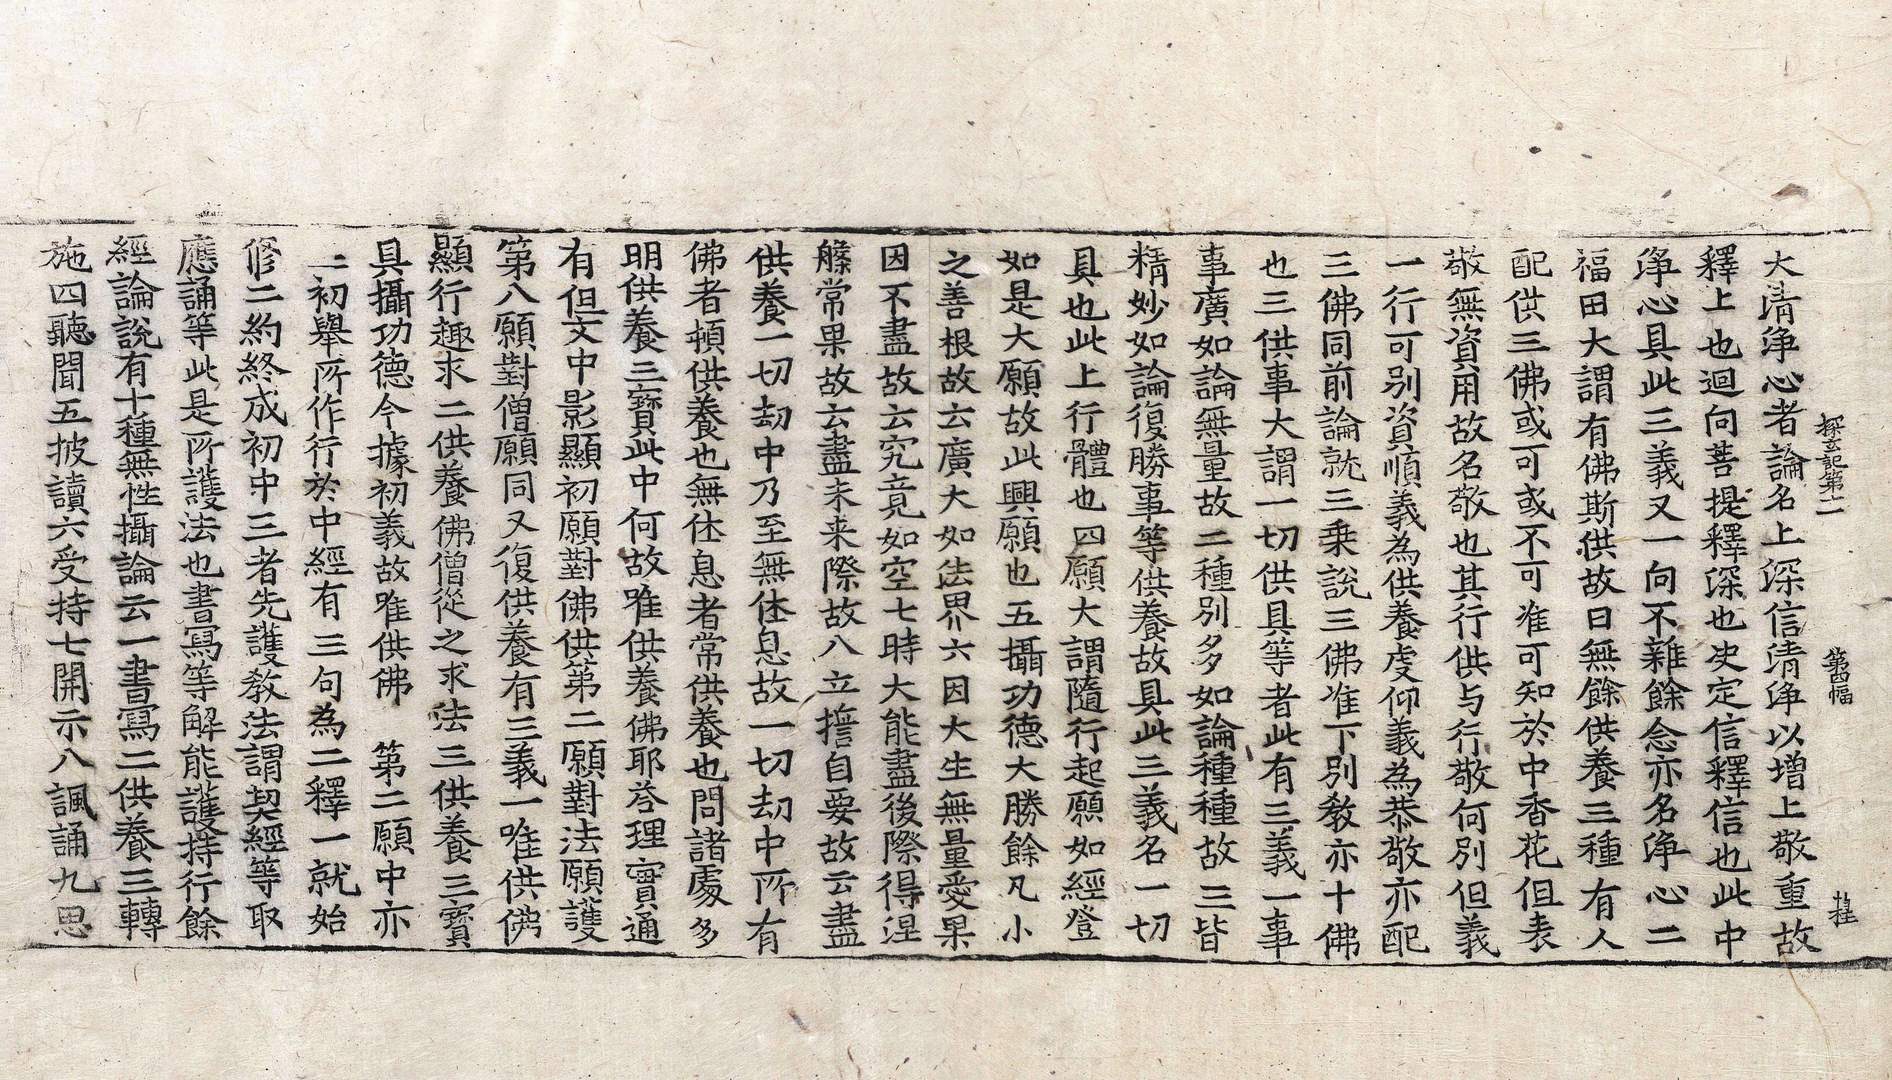 探玄記第二 第四幅
大清淨心者論名上深信清淨以增上敬重故
釋上也迴向菩提釋深也决定信釋信也此中
淨心具此三義又一向不雜餘念亦名淨心二
福田大謂有佛斯供故曰無餘供養三種有人
配供三佛或可或不可准可知於中香花但表
敬無資用故名敬也其行供与行敬何別但義
一行可別資順義為供養虔仰義為恭敬亦配
三佛同前論就三乗說三佛准下別教亦十佛
也三供事大謂一切供具等者此有三義一事
事廣如論無量故二種別多如論種種故三皆
精妙如論復勝事等供養故具此三義名一切
具也此上行體也四願大謂隨行起願如經發
如是大願故此興願也五攝功德大勝餘凡小
之善根故云廣大如法界六因大生無量愛果
因不盡故云究竟如空七時大能盡後際得涅
槃常果故云盡未来際故八立誓自要故云盡
供養一切劫中乃至無休息故一切劫中所有
佛者頓供養也無休息者常供養也問諸處多
明供養三寶此中何故唯供養佛耶荅理實通
有但文中影顯初願對佛供第二願對法願護
第八願對僧願同又復供養有三義一唯供佛
顯行趣求二供養佛僧從之求法三供養三寶
具攝功德今據初義故唯供佛 第二願中亦
二初舉所作行於中經有三句為二釋一就始
修二約終成初中三者先護教法謂契經等取
應誦等此是所護法也書寫等解能護持行餘
經論說有十種無性攝論云一書寫二供養三轉
施四聽聞五披讀六受持七開示八諷誦九思